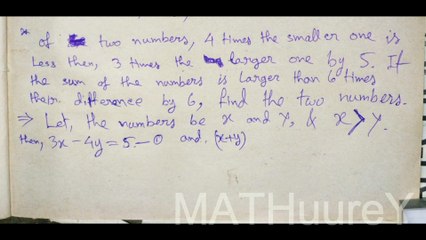 * Of two numbers, 4 times the smaller one is
Less then, 3 times the larger one by 5. If
the sum of the numbers is larger than 6 times
their difference by 6, find the two numbers.
⇒ Let, the numbers be x and y, & x > y.
then, 3x - 4y = 5 — ① and (x+y)
MATHuureY